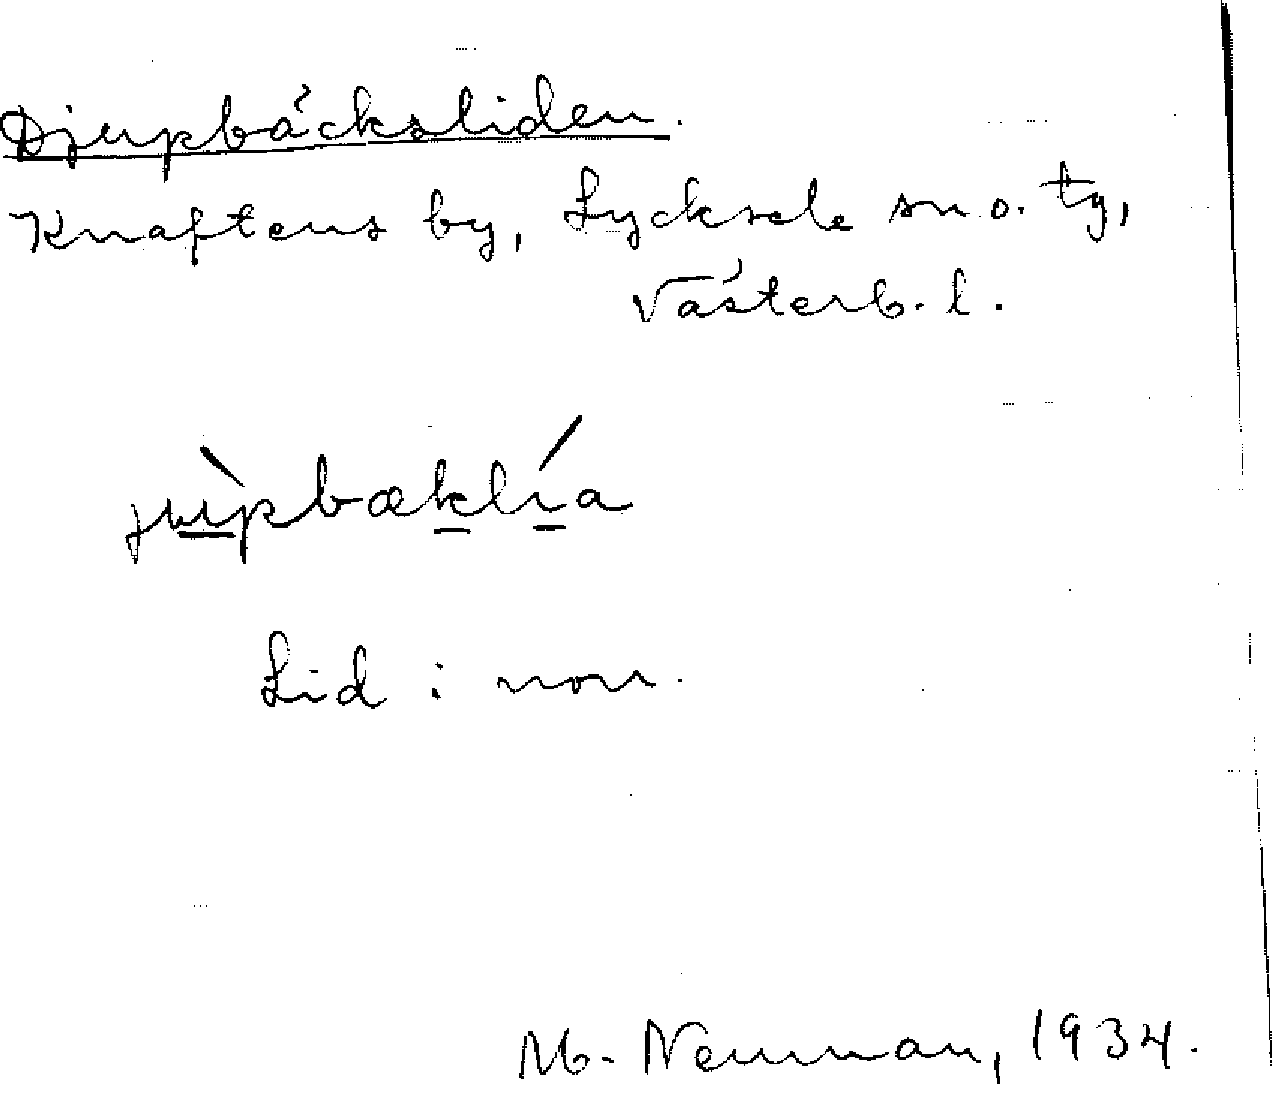 Djupbäcksliden.
Knaftens by, Lycksele sn o. tg,
Västerb. l.
jùpbæklía
Lid: norr.
M. Neuman, 1934.